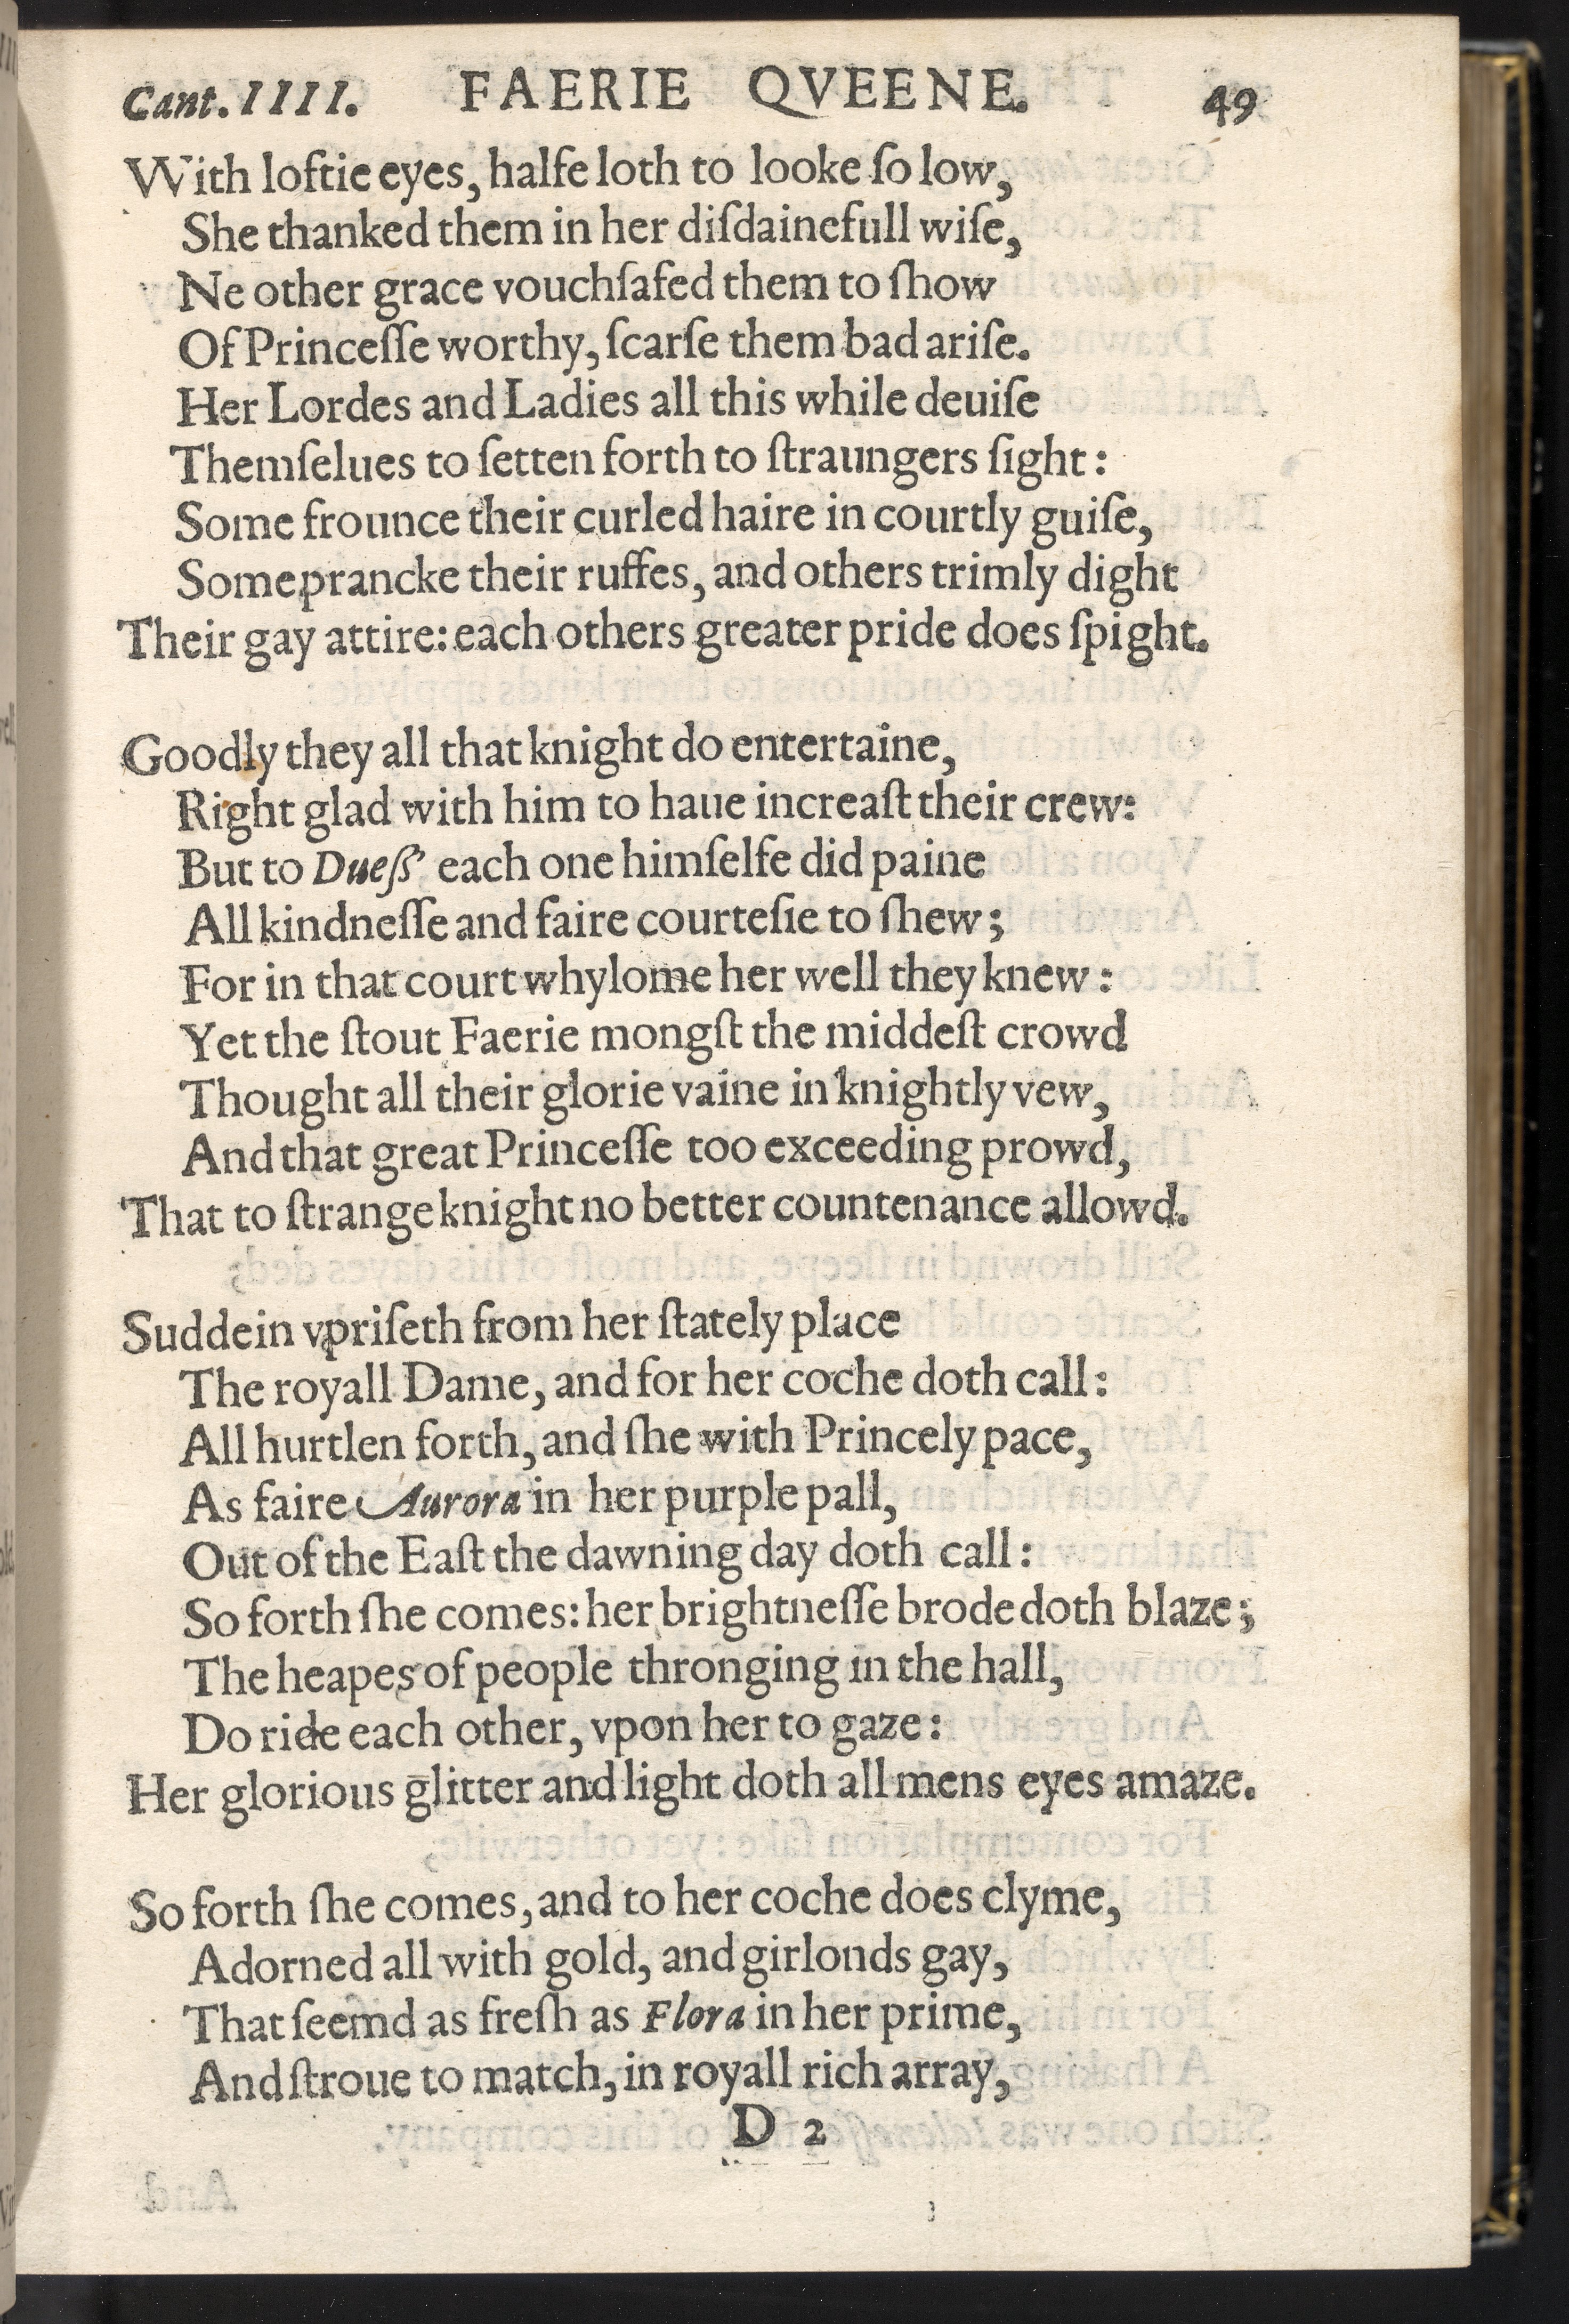 Cant. IIII. FAERIE QVEENE. 49
With loftie eyes, halfe loth to looke ſo low,
She thanked them in her diſdainefull wiſe,
Ne other grace vouchſafed them to ſhow
Of Princeſſe worthy, ſcarſe them bad ariſe.
Her Lordes and Ladies all this while deuiſe
Themſelues to ſetten forth to ſtraungers ſight:
Some frounce their curled haire in courtly guiſe,
Some prancke their ruffes, and others trimly dight
Their gay attire: each others greater pride does ſpight.
Goodly they all that knight do entertaine,
Right glad with him to haue increaſt their crew:
But to Dueſſ' each one himſelfe did paine
All kindneſſe and faire courteſie to ſhew;
For in that court whylome her well they knew:
Yet the ſtout Faerie mongſt the middeſt crowd
Thought all their glorie vaine in knightly vew,
And that great Princeſſe too exceeding prowd,
That to ſtrange knight no better countenance allowd.
Suddein vpriſeth from her ſtately place
The royall Dame, and for her coche doth call:
All hurtlen forth, and ſhe with Princely pace,
As faire Aurora in her purple pall,
Out of the Eaſt the dawning day doth call:
So forth ſhe comes: her brightneſſe brode doth blaze;
The heapes of people thronging in the hall,
Do ride each other, vpon her to gaze:
Her glorious glitter and light doth all mens eyes amaze.
So forth ſhe comes, and to her coche does clyme,
Adorned all with gold, and girlonds gay,
That ſeemd as freſh as Flora in her prime,
And ſtroue to match, in royall rich array,
D 2